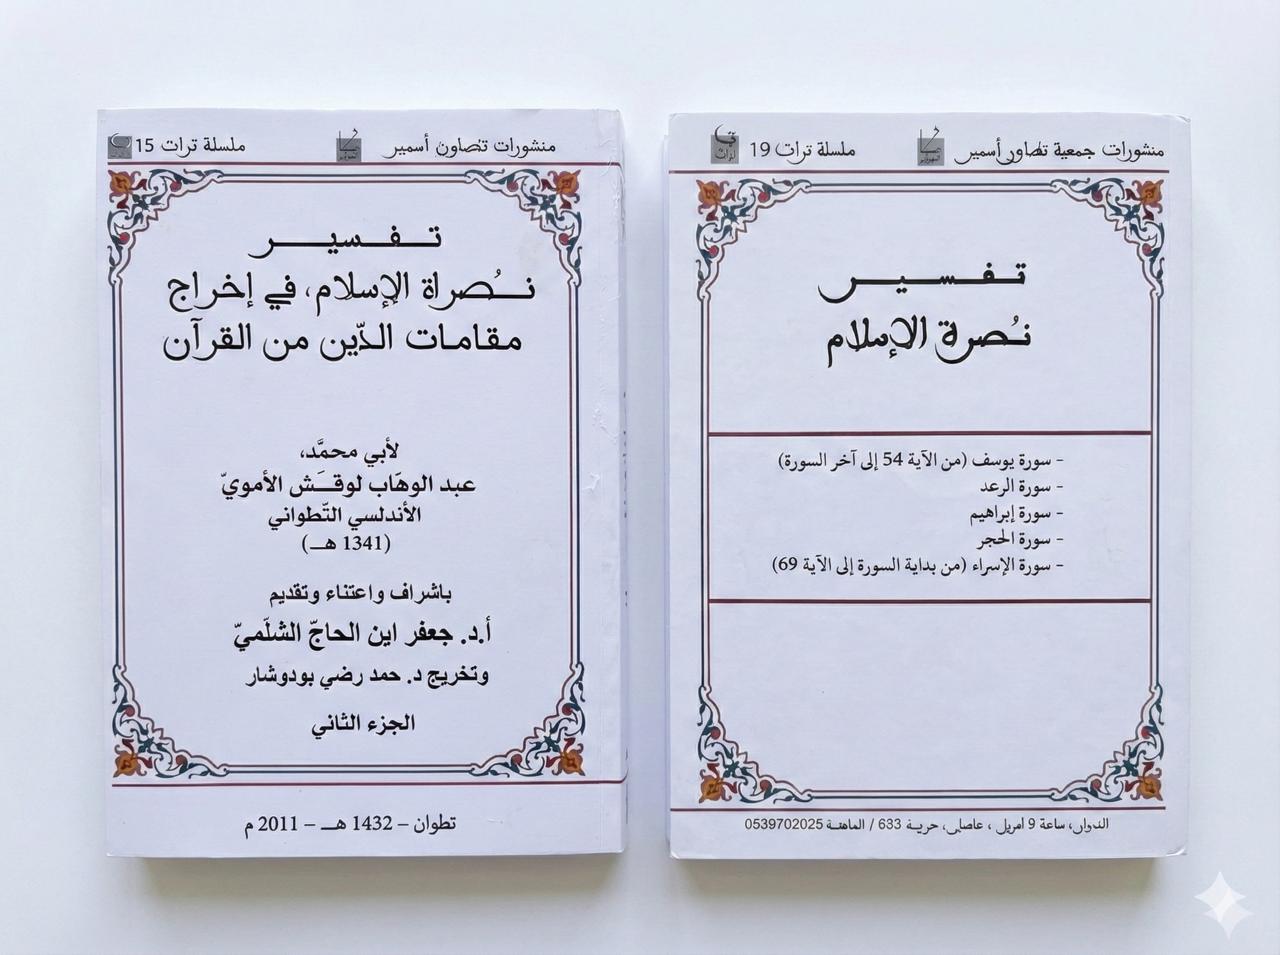 منشورات تصاون أسمير
ملسلة تراث 15
تـفـسيـر
نـُصراة الإسلام، في إخراج
مقامات الدّين من القرآن
لأبي محمَّد،
عبد الوهَاب لوقـَش الأمويّ
الأندلسي التّطواني
(1341 هـ)
باشراف واعتناء وتقديم
أ.د. جعفر اين الحاجّ الشلّميّ
وتخريج د. حمد رضي بودوشار
الجزء الثاني
تطوان – 1432 هـ – 2011 م
منشورات جمعية تصاور أسمير
ملسلة تراث 19
تـفـسيـر
نـُصرة الإسلام
- سورة يوسف (من الآية 54 إلى آخر السورة)
- سورة الرعد
- سورة إبراهيم
- سورة الحجر
- سورة الإسراء (من بداية السورة إلى الآية 69)
ساعة 9 حرية 633 / 0539702025